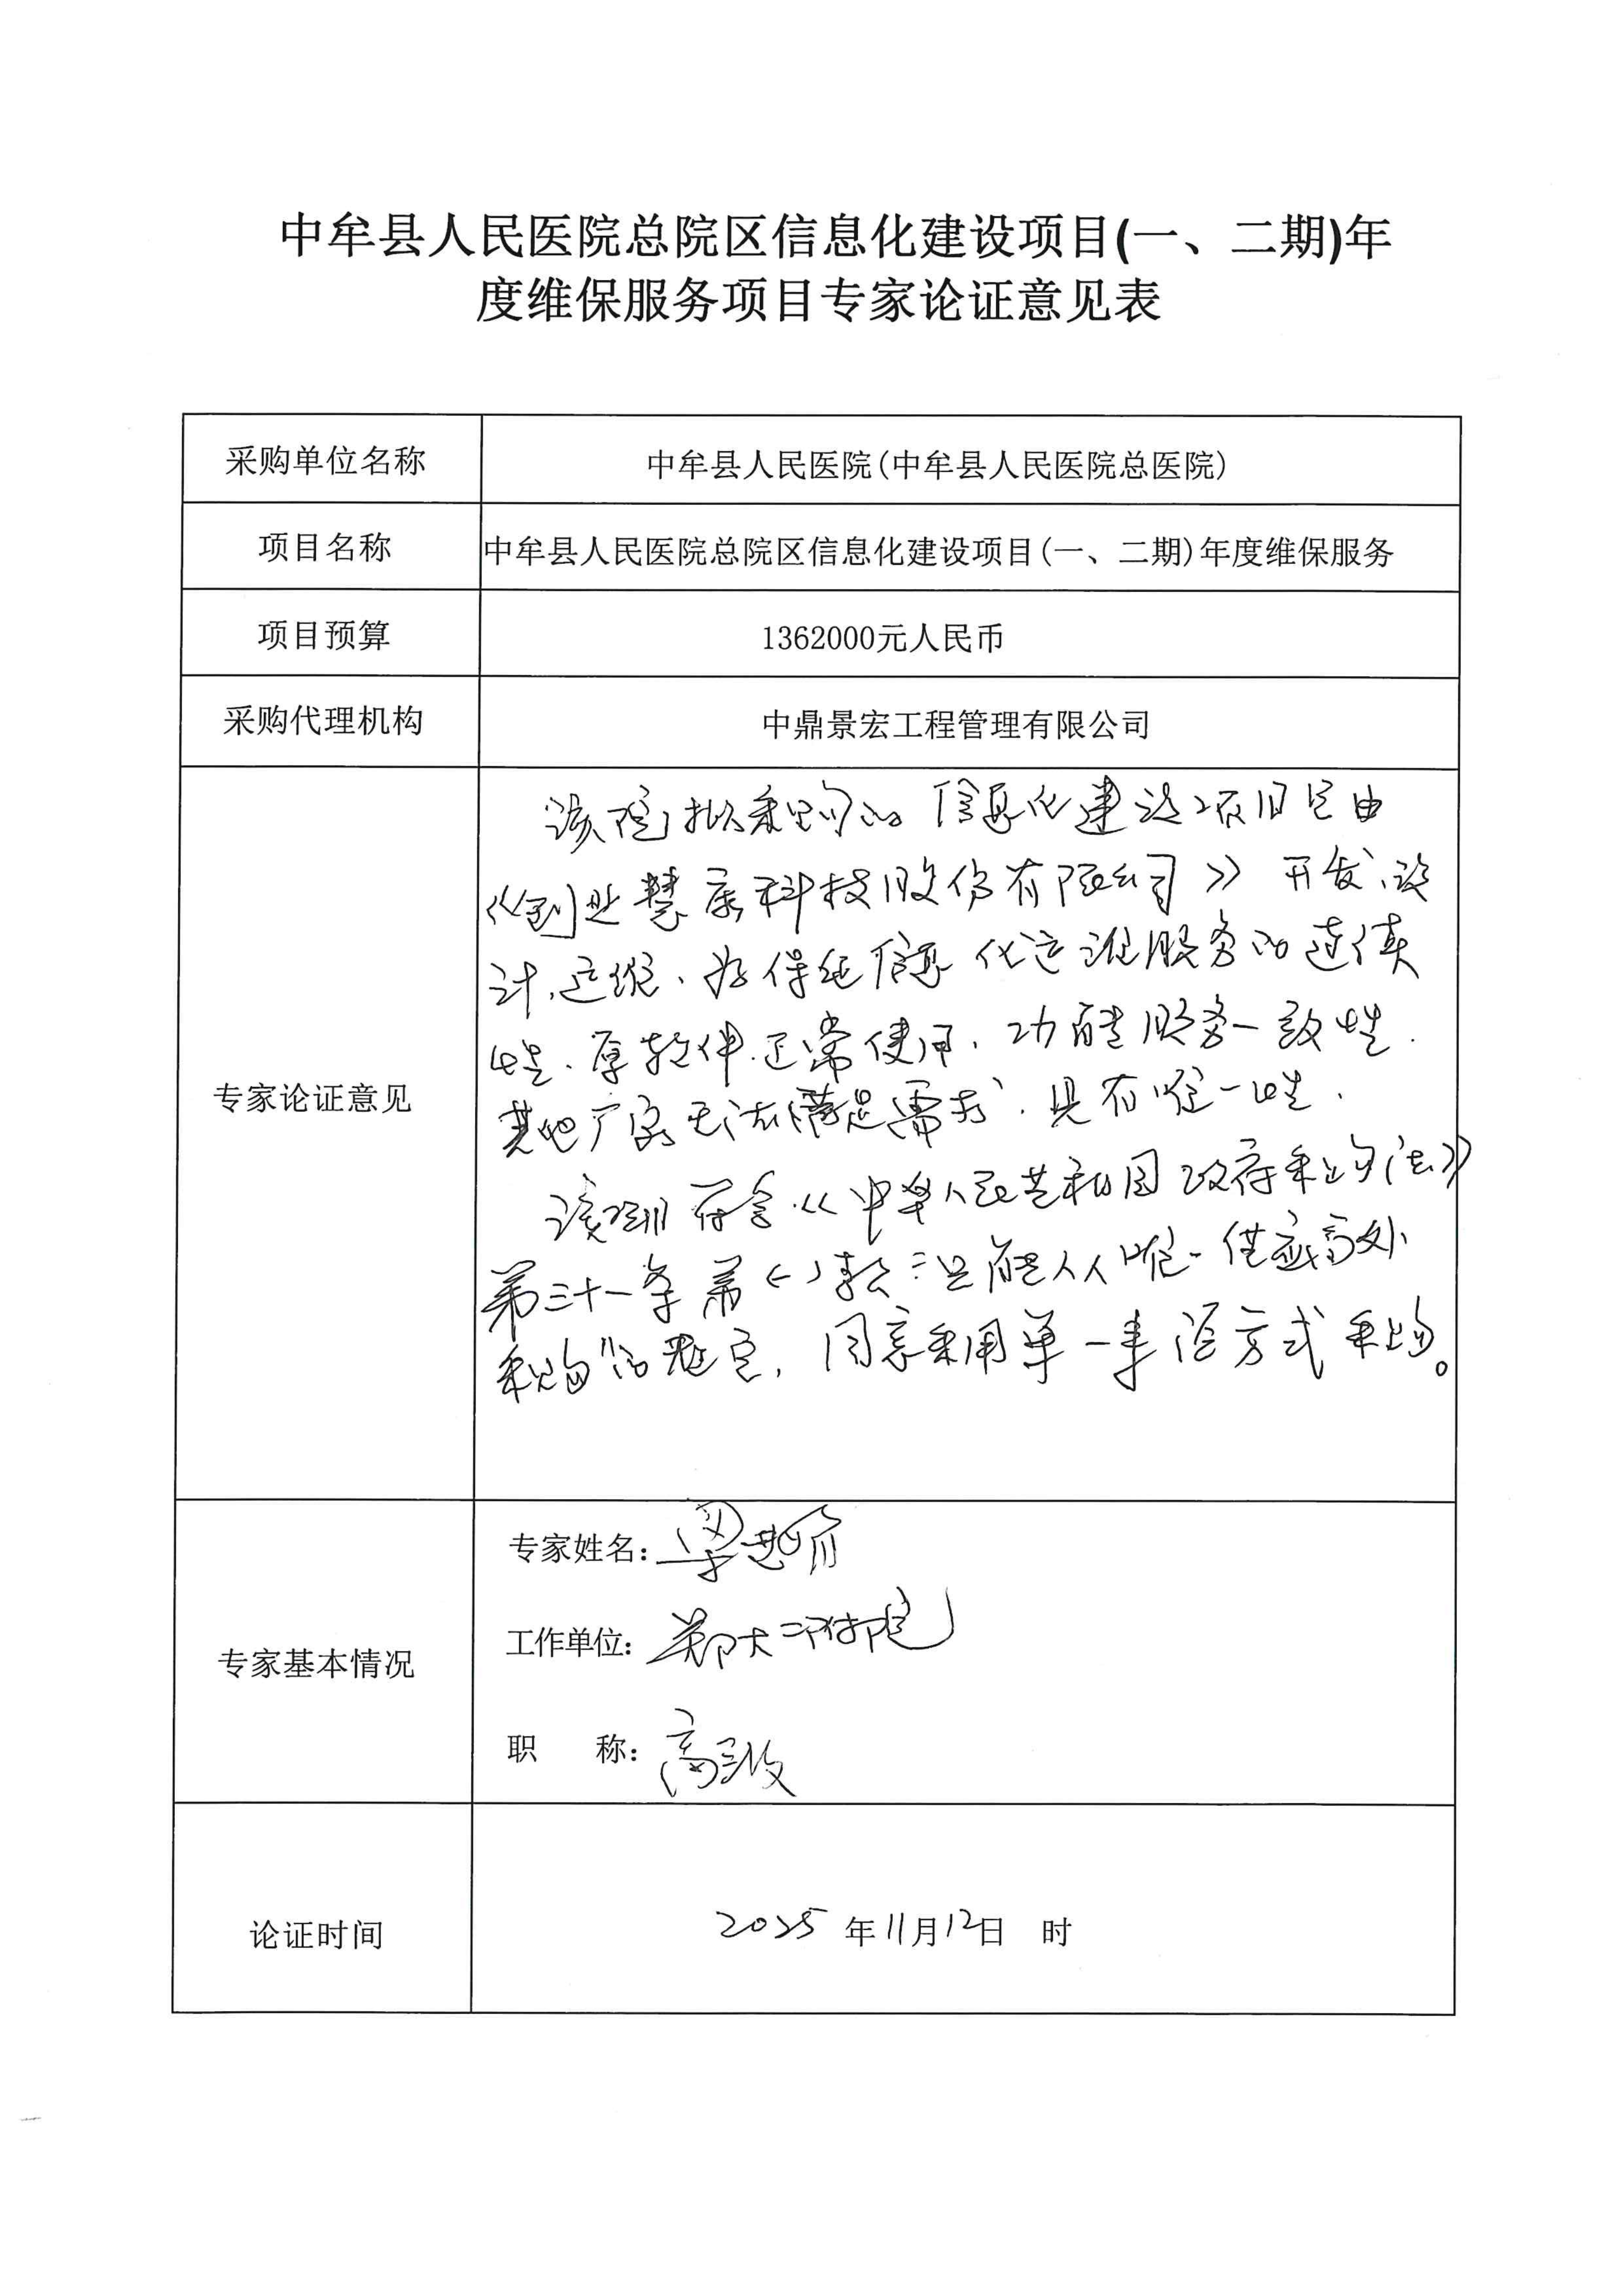 中牟县人民医院总院区信息化建设项目(一、二期)年
度维保服务项目专家论证意见表
采购单位名称 中牟县人民医院(中牟县人民医院总医院)
项目名称 中牟县人民医院总院区信息化建设项目(一、二期)年度维保服务
项目预算 1362000元人民币
采购代理机构 中鼎景宏工程管理有限公司
专家论证意见
该院拟采购的信息化建设项目是由
《创业慧康科技股份有限公司》开发、设
计、运维、为保证信息化运维服务的连续
性、原软件正常使用、功能服务一致性.
其他厂家无法满足需求、具有唯一性.
该项目符合《中华人民共和国政府采购法》
第三十一条第(一)款:只能从唯一供应商处
采购"的规定,同意采用单一来源方式采购。
专家基本情况
专家姓名:梁
工作单位:郑大二附院
职 称:高级
论证时间 2025年11月12日 时